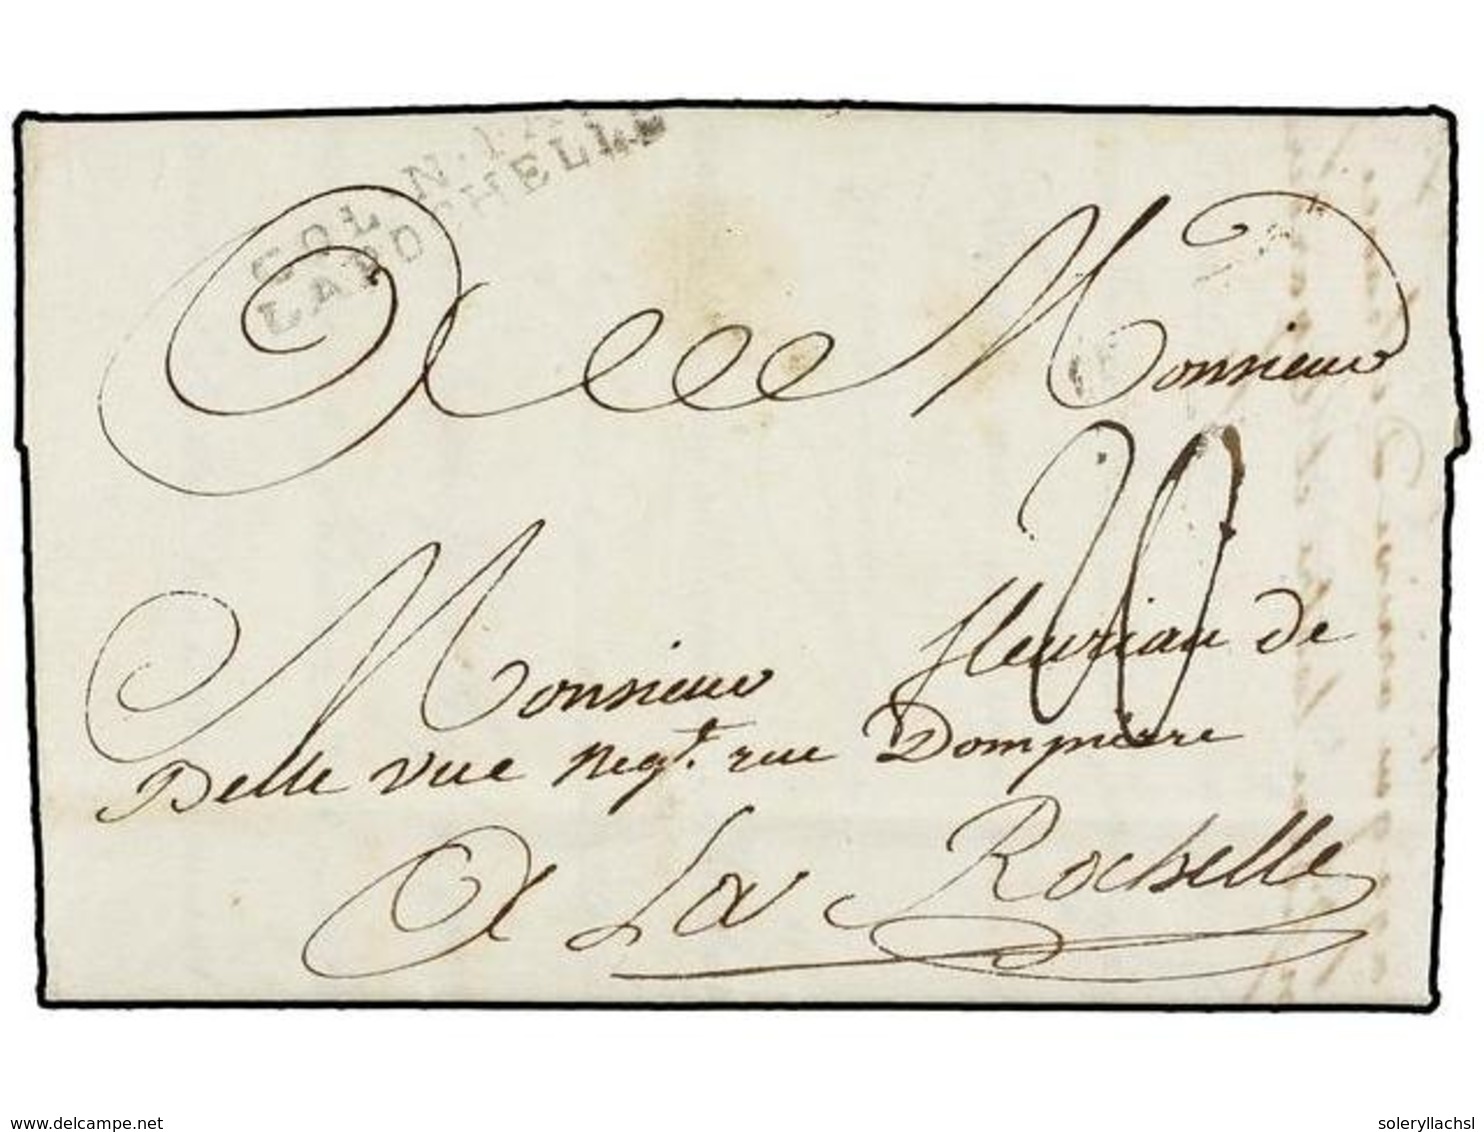 COL. N. PAR
LAROCHELLE
A Monsieur
20
Monsieur fleuriau de
Belle vue negt. rue Dompierre
A La Rochelle
delcampe.net
soleryllachsl